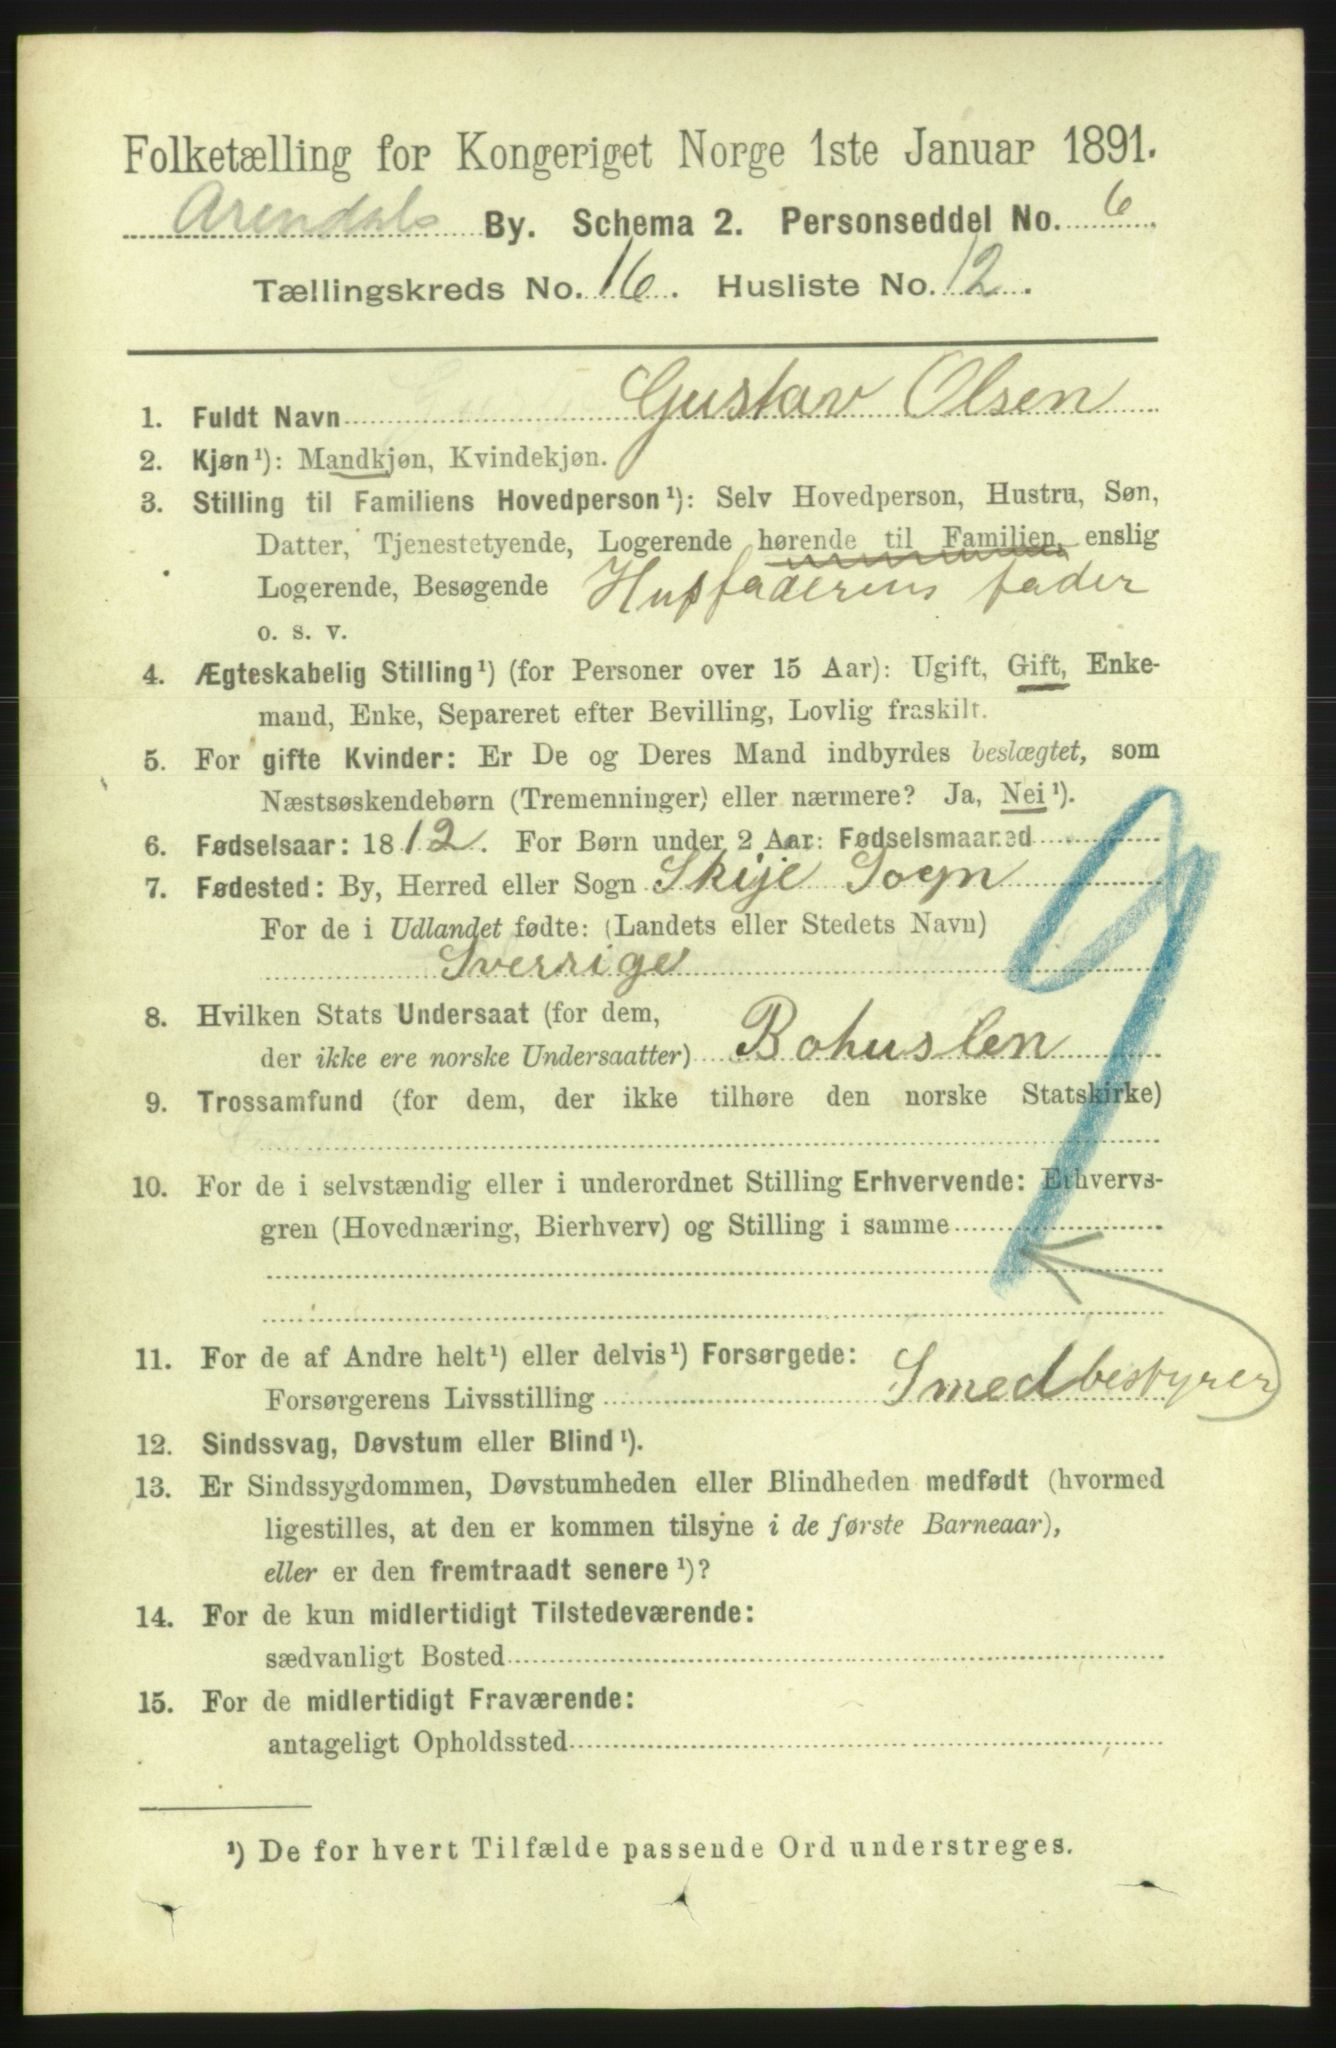 Folketælling for Kongeriget Norge 1ste Januar 1891.
Arendals By. Schema 2. Personseddel No. 6.
Tællingskreds No. 16. Husliste No. 12.
1. Fuldt Navn Gustav Olsen
2. Kjøn¹): Mandkjøn, Kvindekjøn.
3. Stilling til Familiens Hovedperson¹): Selv Hovedperson, Hustru, Søn,
Datter, Tjenestetyende, Logerende hørende til Familien, enslig
Logerende, Besøgende Husfaderens fader
o. s. v.
4. Ægteskabelig Stilling¹) (for Personer over 15 Aar): Ugift, Gift, Enke-
mand, Enke, Separeret efter Bevilling, Lovlig fraskilt.
5. For gifte Kvinder: Er De og Deres Mand indbyrdes beslægtet, som
Næstsøskendebørn (Tremenninger) eller nærmere? Ja, Nei¹).
6. Fødselsaar: 1812. For Børn under 2 Aar: Fødselsmaaned
7. Fødested: By, Herred eller Sogn Skije Sogn
For de i Udlandet fødte: (Landets eller Stedets Navn)
Sverrige
8. Hvilken Stats Undersaat (for dem,
der ikke ere norske Undersaatter) Bohuslen
9. Trossamfund (for dem, der ikke tilhøre den norske Statskirke)
10. For de i selvstændig eller i underordnet Stilling Erhvervende: Erhvervs-
gren (Hovednæring, Bierhverv) og Stilling i samme
11. For de af Andre helt¹) eller delvis¹) Forsørgede:
Forsørgerens Livsstilling Smedbestyrer
12. Sindssvag, Døvstum eller Blind¹).
13. Er Sindssygdommen, Døvstumheden eller Blindheden medfødt (hvormed
ligestilles, at den er kommen tilsyne i de første Barneaar),
eller er den fremtraadt senere¹)?
14. For de kun midlertidigt Tilstedeværende:
sædvanligt Bosted
15. For de midlertidigt Fraværende:
antageligt Opholdssted
¹) De for hvert Tilfælde passende Ord understreges.